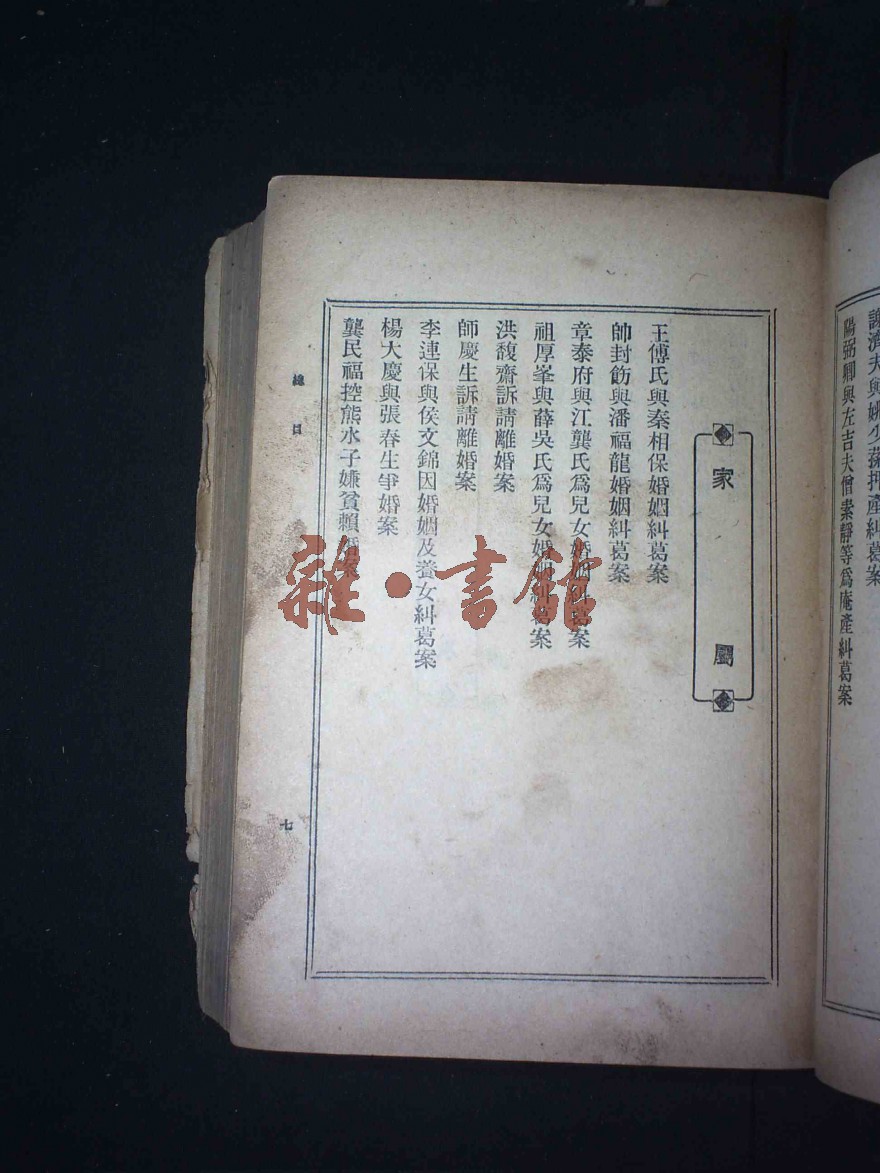 謙濟夫與姚少蓀押產糾葛案
陽弼卿與左吉夫僧素靜等爲庵產糾葛案
家屬
王傅氏與秦相保婚姻糾葛案
帥封飭與潘福龍婚姻糾葛案
章泰府與江龔氏爲兒女婚姻糾葛案
祖厚峯與薛吳氏爲兒女婚姻糾葛案
洪馥齋訴請離婚案
師慶生訴請離婚案
李連保與侯文錦因婚姻及養女糾葛案
楊大慶與張春生爭婚案
龔民福控熊水子嫌貧賴婚案
總目
七
雜·書館